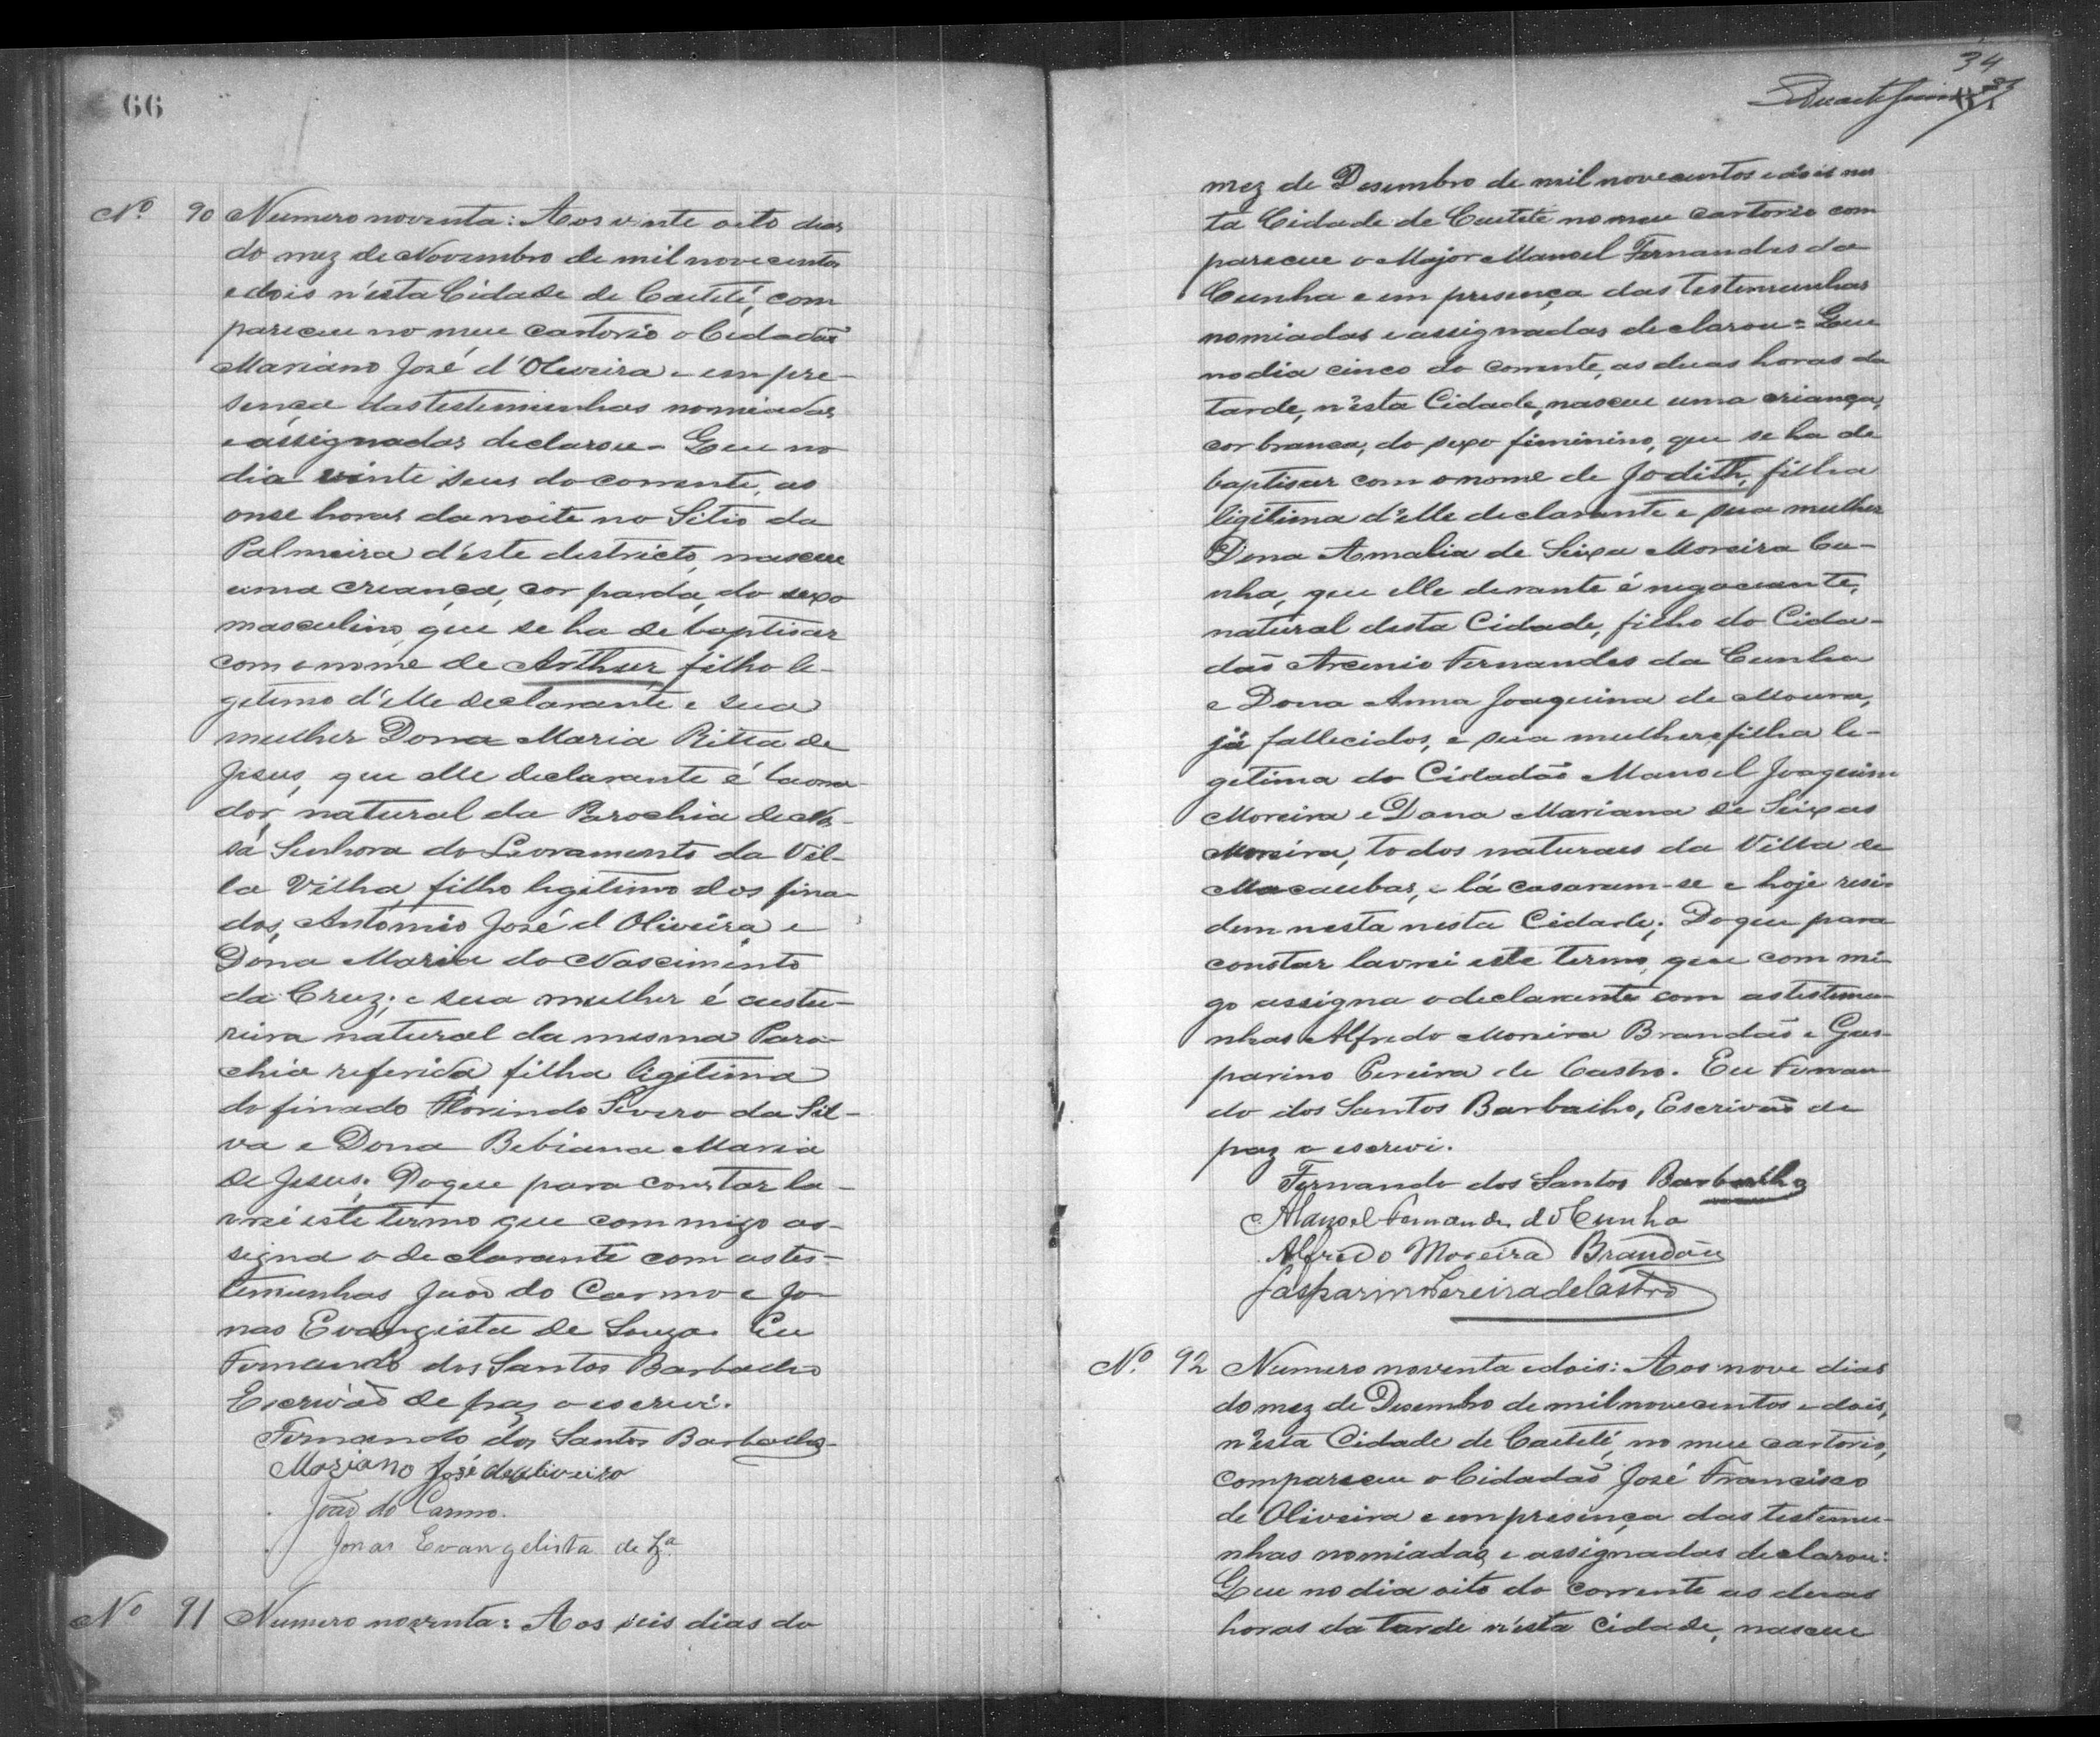 66
Nº 90 Numero noventa: Aos vinte oito dias
do mez de Novembro de mil novecentos
e dois n'esta Cidade de Caeteté, com
pareceu no meu cartorio o Cidadão
Mariano José d'Oliveira e em pre-
sença das testemunhas nomiadas
e assignadas declarou - Que no
dia vinte seis do corrente, as
onse horas da noite no Sitio da
Palmeira d'este destricto, nasceu
uma creança, cor parda, do sexo
masculino, que se ha de baptisar
com o nome de Arthur, filho le-
getimo d'elle declarante e sua
mulher Dona Maria Ritta de
Jesus, que elle declarante é lavra-
dor, natural da Parochia de Nos-
sa Senhora do Livramento da Vil-
la Vilha, filho legitimo dos fina-
dos, Antonio José d Oliveira e
Dona Maria do Nascimento
da Cruz; e sua mulher é custu-
reira natural da mesma Paro-
chia referida, filha ligitima
do finado Florindo Severo da Sil-
va e Dona Bebiana Maria
de Jesus. Do que para constar la-
vrei este termo que commigo as-
signa o declarante com as tes-
temunhas João do Carmo e Jo-
nas Evangista de Souza. Eu
Fernando dos Santos Barbalho
Escrivão de paz o escrevi.
Fernando dos Santos Barbalho
Mariano José de oliveira
João do Carmo.
Jonas Evangelista de Sza
Nº 91 Numero noventa: Aos seis dias do
34
mez de Desembro de mil novecentos e dois nes
ta Cidade de Caeteté no meu cartorio com
pareceu o Major Manoel Fernandes da
Cunha e em presença das testemunhas
nomiadas e assignadas declarou = Que
no dia cinco do corrente, as duas horas da
tarde, n'esta Cidade, nasceu uma criança,
cor branca, do sexo feminino, que se ha de
baptisar com o nome de Jodith, filha
ligitima d'elle declarante e sua mulher
Dona Amalia de Seixa Moreira Cu-
nha, que elle derante é negociante,
natural desta Cidade, filho do Cida-
dão Arcenio Fernandes da Cunha
e Dona Anna Joaquina de Moura,
já fallecidos, e sua mulher e filha le-
gitima do Cidadão Manoel Joaquim
Moreira e Dona Mariana de Seixas
Moreira, todos naturaes da Villa de
Macaubas, e lá casaram-se e hoje resi-
dem nesta nesta Cidade; Do que para
constar lavrei este termo, que com mi-
go assigna o declarante com as testemu-
nhas Alfredo Moreira Brandão e Gas-
parino Pereira de Castro. Eu Fernan-
do dos Santos Barbalho, Escrivão de
paz o escrevi.
Fernando dos Santos Barbalho
Manoel Fernandes da Cunha
Alfredo Moreira Brandão
Gasparino Pereira de Castro
Nº 92 Numero noventa e dois: Aos nove dias
do mez de Desembro de mil novecentos e dois,
n'esta Cidade de Caeteté, no meu cartorio,
compareceu o Cidadão José Francisco
de Oliveira e em presença das testemu-
nhas nomiadas, e assignadas declarou:
Que no dia oito do corrente as duas
horas da tarde n'esta Cidade, nasceu